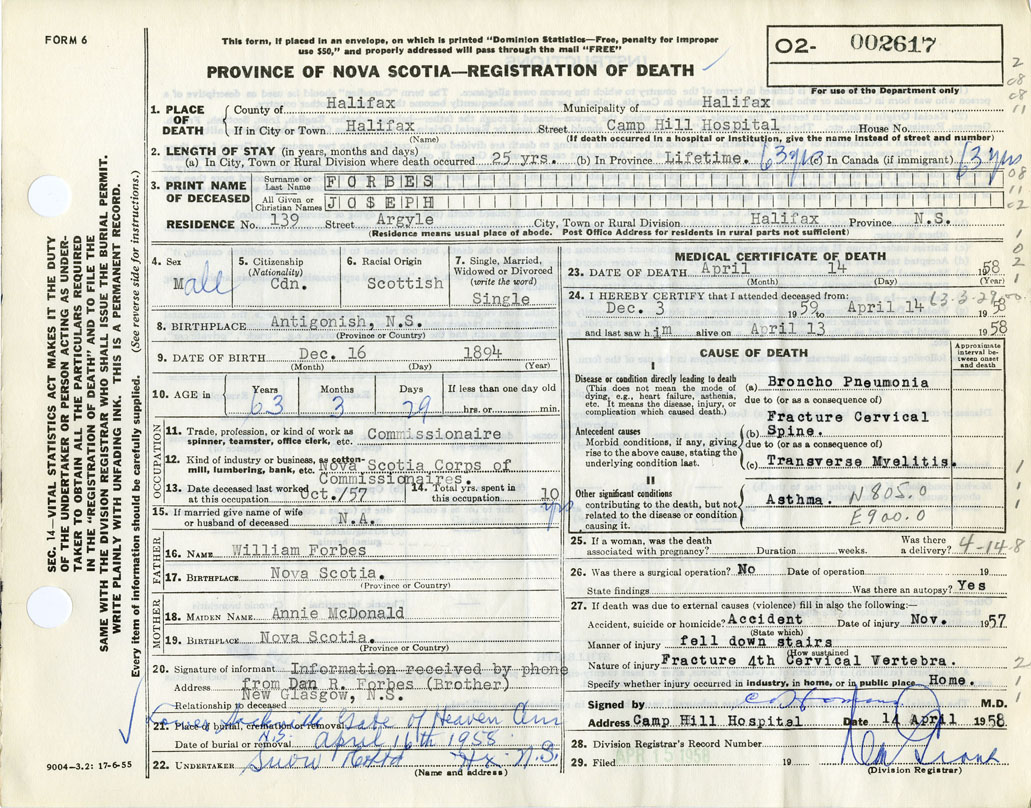 FORM 6
This form, if placed in an envelope, on which is printed "Dominion Statistics—Free, penalty for improper
use $50," and properly addressed will pass through the mail "FREE"
PROVINCE OF NOVA SCOTIA—REGISTRATION OF DEATH
02- 002617
For use of the Department only
1. PLACE OF DEATH County of Halifax Municipality of Halifax
If in City or Town Halifax Street Camp Hill Hospital House No.
(Name) (If death occurred in a hospital or institution, give the name instead of street and number)
2. LENGTH OF STAY (in years, months and days)
(a) In City, Town or Rural Division where death occurred 25 yrs. (b) In Province Lifetime. 63 yrs (c) In Canada (if immigrant) 63 yrs
3. PRINT NAME OF DECEASED
Surname or Last Name FORBES
All Given or Christian Names JOSEPH
RESIDENCE No. 139 Street Argyle City, Town or Rural Division Halifax Province N.S.
(Residence means usual place of abode. Post Office Address for residents in rural parts not sufficient)
4. Sex Male
5. Citizenship (Nationality) Cdn.
6. Racial Origin Scottish
7. Single, Married, Widowed or Divorced (write the word) Single
8. BIRTHPLACE Antigonish, N.S.
(Province or Country)
9. DATE OF BIRTH Dec. 16 1894
(Month) (Day) (Year)
10. AGE in Years 63 Months 3 Days 29 If less than one day old hrs. or min.
OCCUPATION
11. Trade, profession, or kind of work as spinner, teamster, office clerk, etc. Commissionaire
12. Kind of industry or business, as cotton-mill, lumbering, bank, etc. Nova Scotia Corps of Commissionaires.
13. Date deceased last worked at this occupation Oct./57
14. Total yrs. spent in this occupation 10 yrs
15. If married give name of wife or husband of deceased N.A.
FATHER
16. NAME William Forbes
17. BIRTHPLACE Nova Scotia.
(Province or Country)
MOTHER
18. MAIDEN NAME Annie McDonald
19. BIRTHPLACE Nova Scotia.
(Province or Country)
20. Signature of informant Information received by phone
Address from Dan R. Forbes (Brother)
New Glasgow, N.S.
Relationship to deceased
21. Place of burial, cremation or removal Gate of Heaven Cem
N.S.
Date of burial or removal April 16th 1958
22. UNDERTAKER Snow Hfx N.S.
(Name and address)
9004—3.2: 17-6-55
SEC. 14—VITAL STATISTICS ACT MAKES IT THE DUTY
OF THE UNDERTAKER OR PERSON ACTING AS UNDER-
TAKER TO OBTAIN ALL THE PARTICULARS REQUIRED
IN THE "REGISTRATION OF DEATH" AND TO FILE THE
SAME WITH THE DIVISION REGISTRAR WHO SHALL ISSUE THE BURIAL PERMIT.
WRITE PLAINLY WITH UNFADING INK. THIS IS A PERMANENT RECORD.
Every item of information should be carefully supplied. (See reverse side for instructions.)
MEDICAL CERTIFICATE OF DEATH
23. DATE OF DEATH April 14 1958
(Month) (Day) (Year)
24. I HEREBY CERTIFY that I attended deceased from:
Dec. 3 1959 to April 14 1958
and last saw him alive on April 13 1958
CAUSE OF DEATH
Approximate interval between onset and death
I
Disease or condition directly leading to death
(This does not mean the mode of dying, e.g., heart failure, asthenia, etc. It means the disease, injury, or complication which caused death.)
(a) Broncho Pneumonia
due to (or as a consequence of)
Antecedent causes
Morbid conditions, if any, giving rise to the above cause, stating the underlying condition last.
(b) Fracture Cervical Spine.
due to (or as a consequence of)
(c) Transverse Myelitis.
II
Other significant conditions contributing to the death, but not related to the disease or condition causing it.
Asthma. N805.0
E900.0
25. If a woman, was the death associated with pregnancy? Duration weeks. Was there a delivery? 4-14-8
26. Was there a surgical operation? No Date of operation 19
State findings Was there an autopsy? Yes
27. If death was due to external causes (violence) fill in also the following:—
Accident, suicide or homicide? Accident Date of injury Nov. 1957
(State which)
Manner of injury fell down stairs
(How sustained)
Nature of injury Fracture 4th Cervical Vertebra.
Specify whether injury occurred in industry, in home, or in public place Home.
Signed by M.D.
Address Camp Hill Hospital Date 14 April 1958.
28. Division Registrar's Record Number
29. Filed APR 15 1958 19
(Division Registrar)